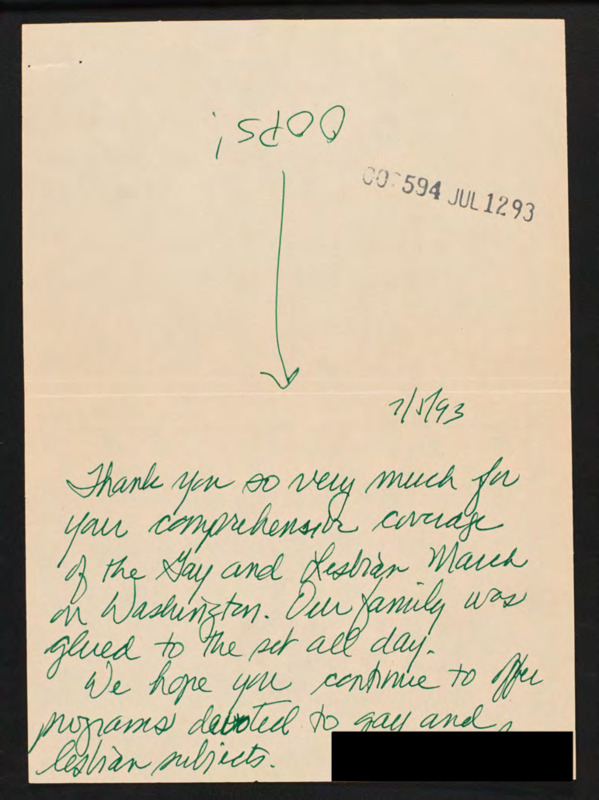 OOPS!
594 JUL 12 93
7/5/93
Thank you so very much for
your comprehensive coverage
of the Gay and Lesbian March
on Washington. Our family was
glued to the set all day.
We hope you continue to offer
programs devoted to gay and
lesbian subjects.